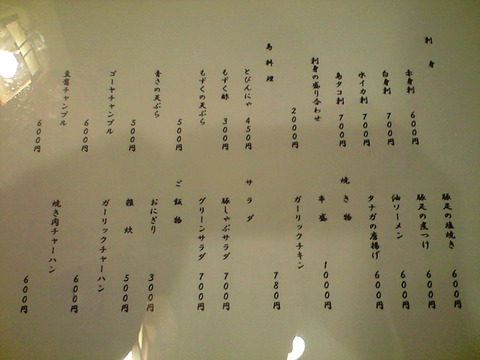 刺身
赤身刺 600円
白身刺 700円
水イカ刺 700円
島タコ刺 700円
刺身の盛り合わせ 2000円
島料理
とびんにゃ 450円
もずく酢 300円
もずくの天ぷら 500円
青さの天ぷら 500円
ゴーヤチャンプル 600円
豆腐チャンプル 600円
豚足の塩焼き 600円
豚足の煮つけ 600円
油ソーメン 600円
タナガの唐揚げ 600円
焼き物
串盛 1000円
ガーリックチキン 780円
サラダ
豚しゃぶサラダ 700円
グリーンサラダ 700円
ご飯物
おにぎり 300円
雑炊 500円
ガーリックチャーハン 600円
焼き肉チャーハン 600円